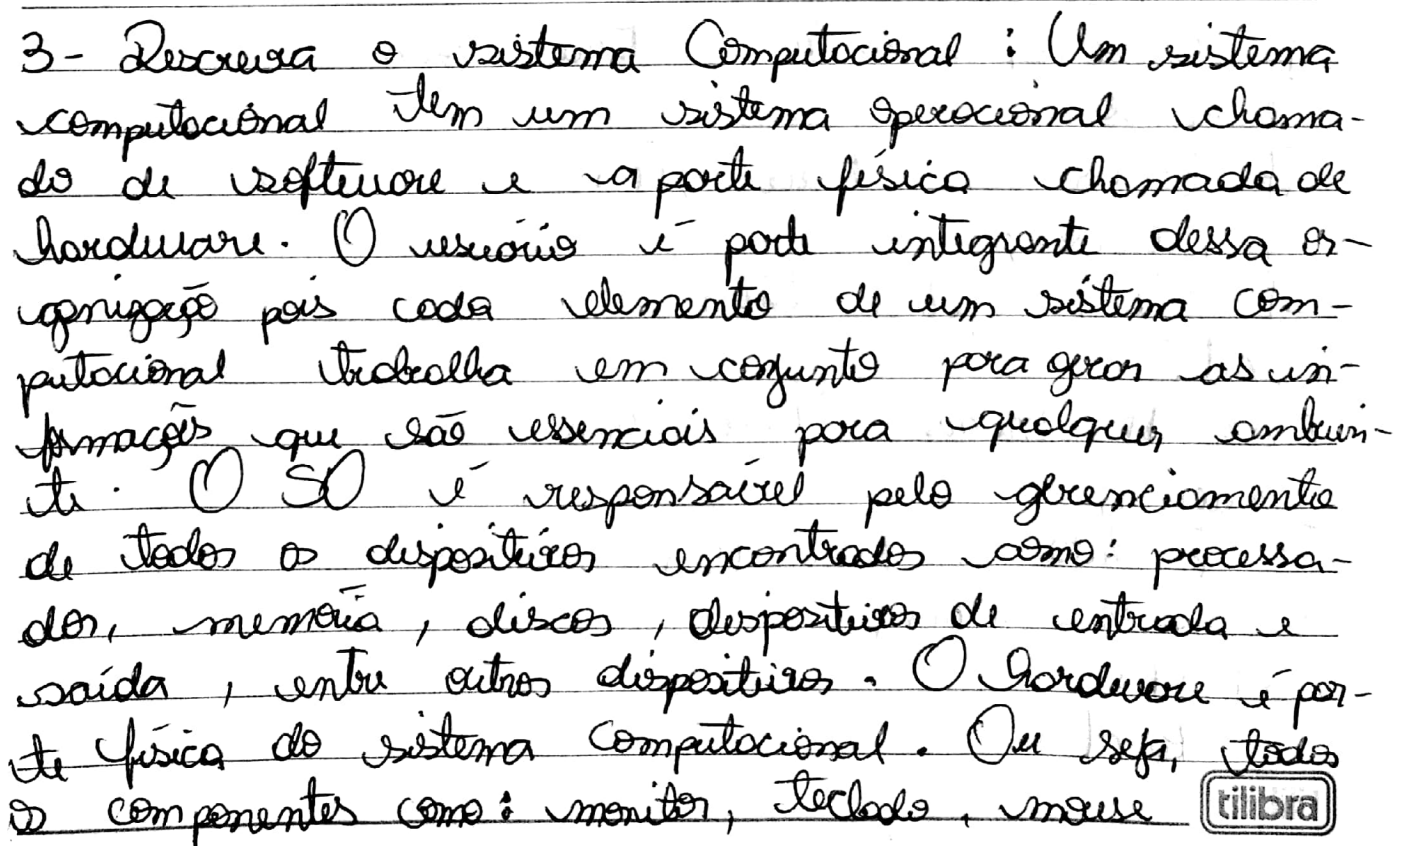 3- Descreva o sistema Computacional : Um sistema
computacional tem um sistema operacional chama-
do de software e a parte física chamada de
hardware. O usuário é parte integrante dessa or-
ganização pois cada elemento de um sistema com-
putacional trabalha em conjunto para gerar as in-
formações que são essenciais para qualquer ambien-
te. O SO é responsável pelo gerenciamento
de todos os dispositivos encontrados como: processa-
dor, memória, discos, dispositivos de entrada e
saída, entre outros dispositivos. O hardware é par-
te física do sistema computacional. Ou seja, todos
os componentes como: monitor, teclado, mouse
tilibra